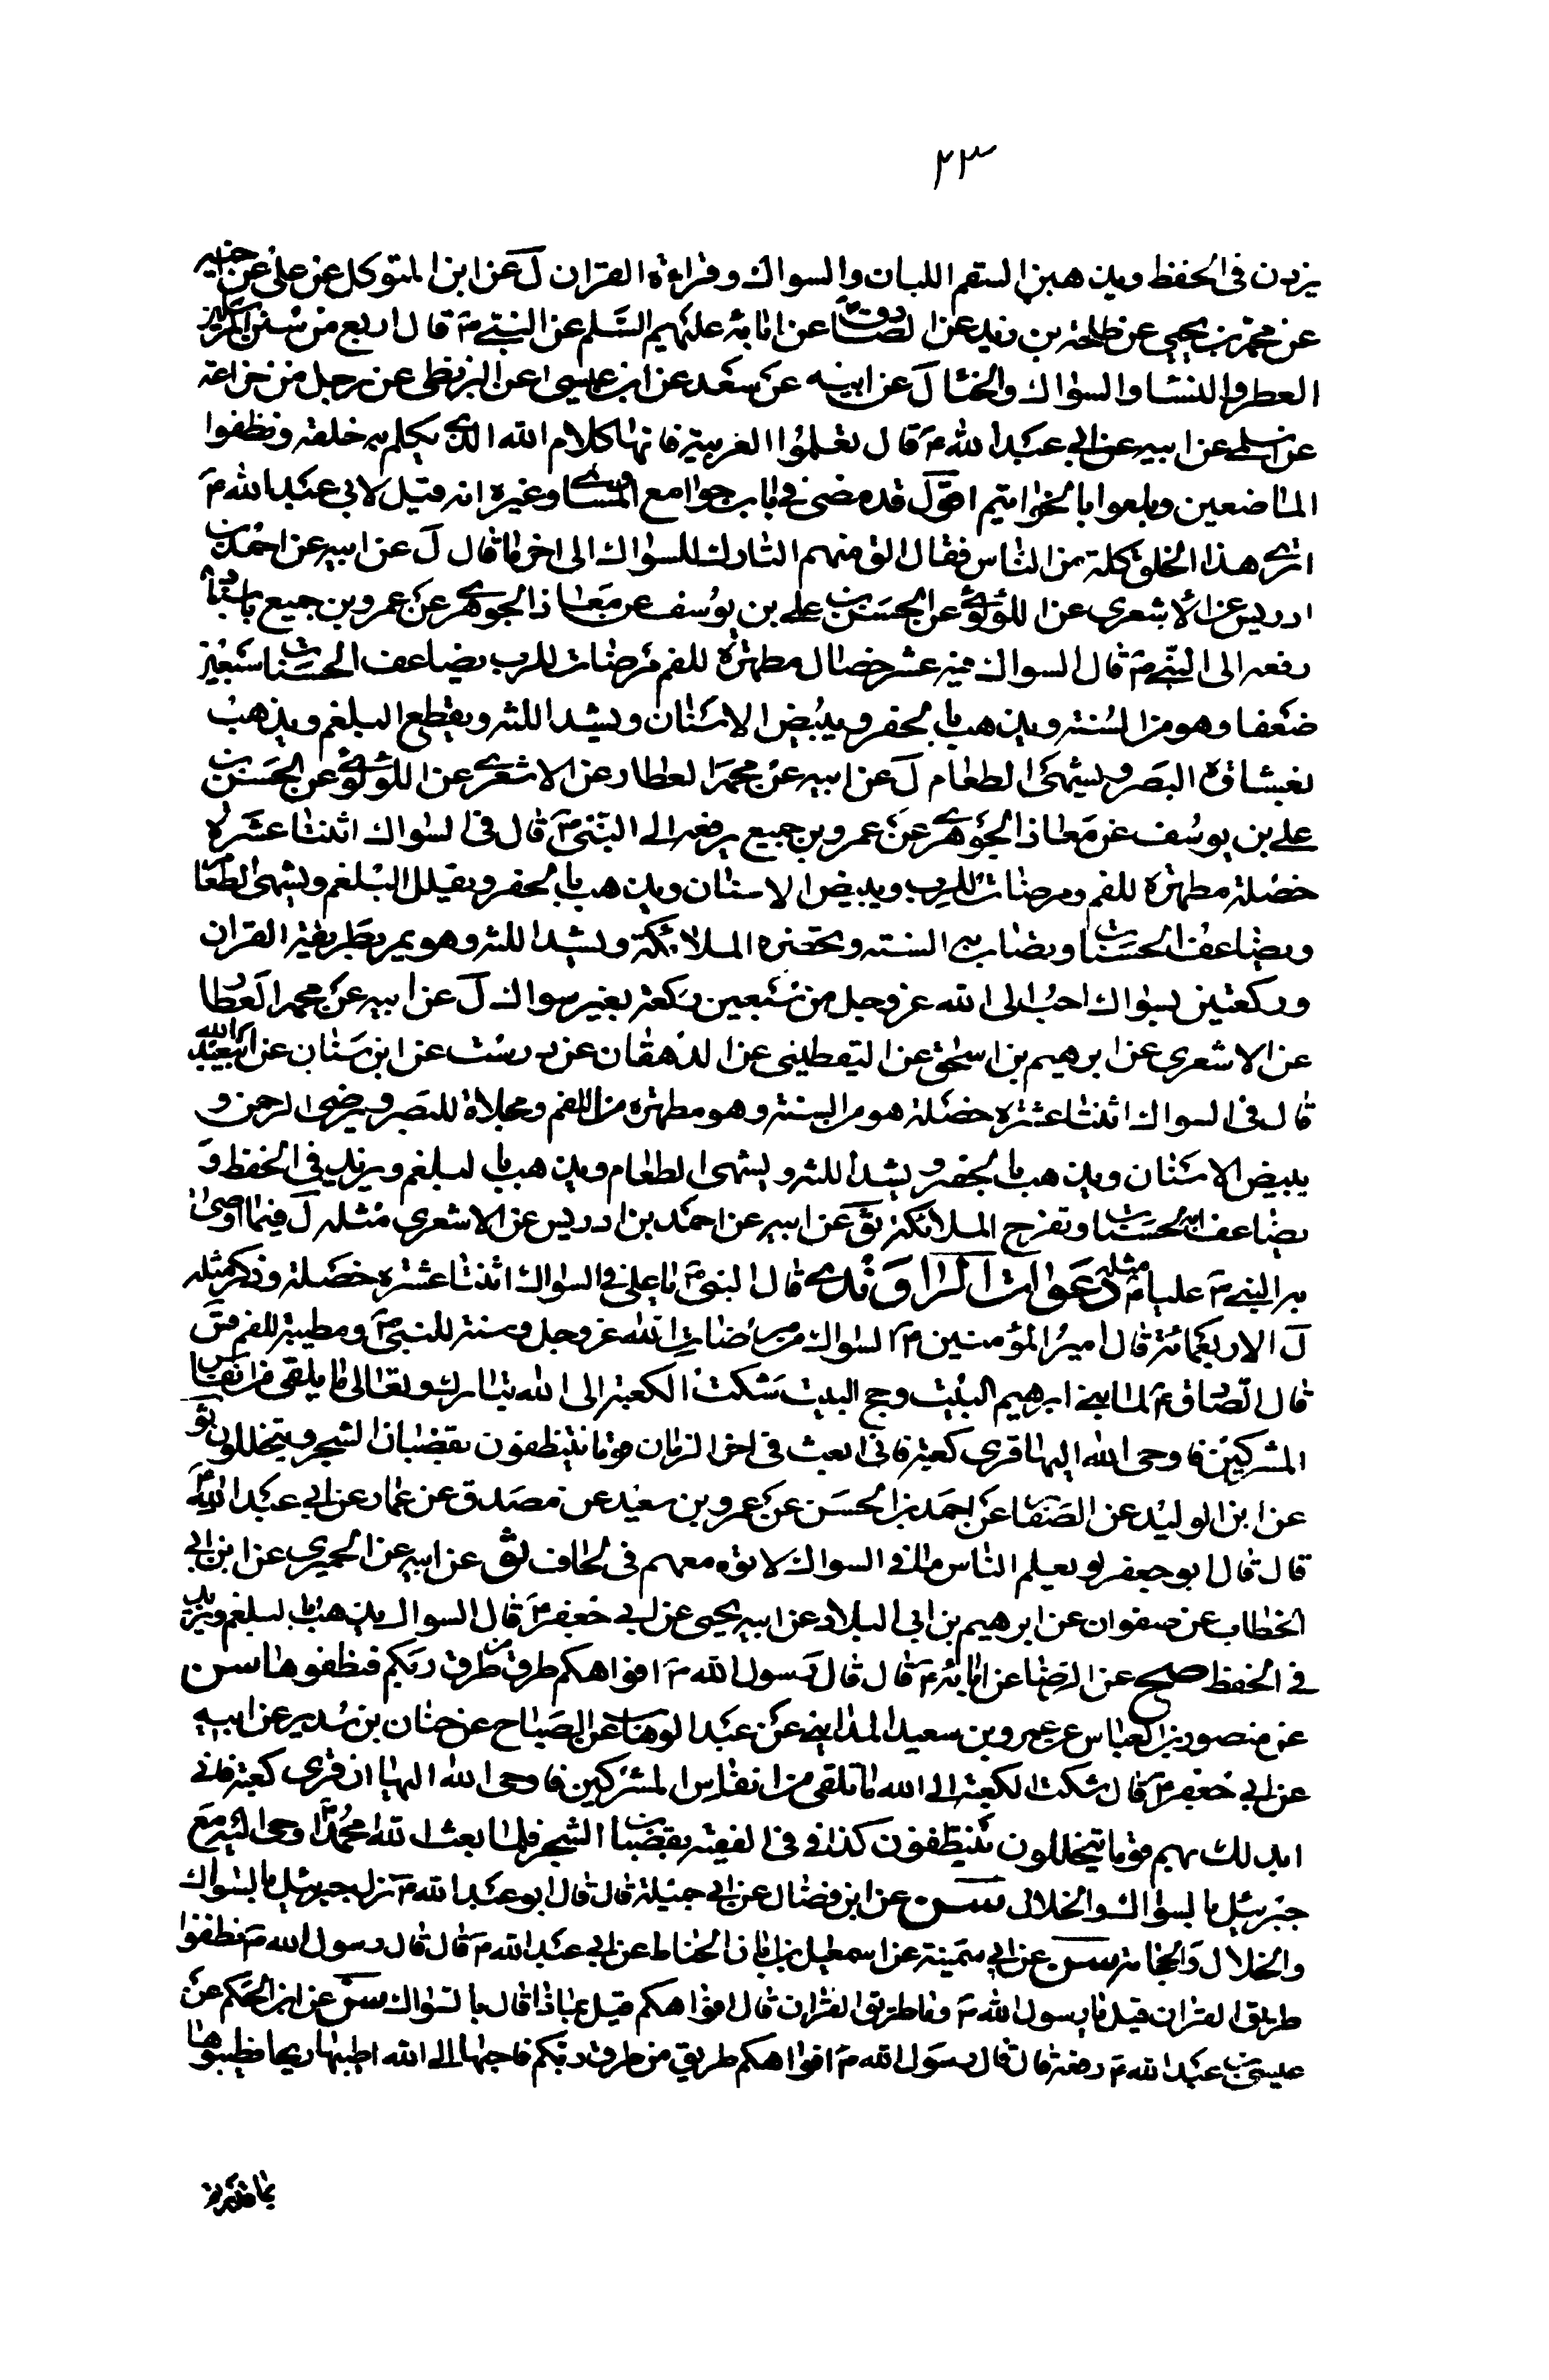 ٢٣
يزدن فى الحفظ ويذهبن السقم اللبان والسواك وقراءة القران ل عن ابن المتوكل عن على عن
عن محمد بن يحيى عن طلحة بن زيد عن الصادق عن ابائه عليهم السلم عن النبى ص قال اربع من سنن المرسلين
العطر والنساء والسواك والحناء ل عن ابيه عن سعد عن ابن عيسى عن البزنطى عن رجل من خزاعة
عن اسلمى عن ابيه عن ابى عبد الله ع قال تعلموا العربية فانها كلام الله الذى يكلم به خلقه ونظفوا
الماضغين وبلعوا بالخواتيم اقول قد مضى فى باب جوامع المساوى وغيره انه قيل لابى عبد الله ع
اترى هذا الخلق كله من الناس فقال الق منهم التارك للسواك الى اخر ما قال ل عن ابيه عن احمد بن
ادريس عن الاشعرى عن اللؤلؤى عن الحسن بن على بن يوسف عن معاذ الجوهرى عن عمرو بن جميع باسناد
رفعه الى النبى ص قال السواك فيه عشر خصال مطهرة للفم مرضات للرب يضاعف الحسنات سبعين
ضعفا وهو من السنة ويذهب بالحفر ويبيض الاسنان ويشد اللثة ويقطع البلغم ويذهب
بغشاوة البصر ويشهى الطعام ل عن ابيه عن محمد العطار عن الاشعرى عن اللؤلؤى عن الحسن بن
على بن يوسف عن معاذ الجوهرى عن عمرو بن جميع يرفعه الى النبى ص قال فى السواك اثنتا عشرة
خصلة مطهرة للفم ومرضات للرب ويبيض الاسنان ويذهب بالحفر ويقلل البلغم ويشهى الطعام
ويضاعف الحسنات ويصاب به السنة وتحضره الملائكة ويشد اللثة وهو يمر بطريقة القران
وركعتين بسواك احب الى الله عز وجل من سبعين ركعة بغير سواك ل عن ابيه عن محمد العطار
عن الاشعرى عن ابرهيم بن اسحق عن اليقطينى عن الدهقان عن درست عن ابن سنان عن ابى عبد الله
قال فى السواك اثنتا عشرة خصلة هو من السنة وهو مطهرة من الفم ومجلاة للبصر ويرضى الرحمن و
يبيض الاسنان ويذهب بالحفر ويشد اللثة ويشهى الطعام ويذهب بالبلغم ويزيد فى الحفظ و
يضاعف به الحسنات وتفرح الملائكة ثو عن ابيه عن احمد بن ادريس عن الاشعرى مثله ل فيما اوصى
به النبى ص عليا ع مثله دعوات الراوندى قال النبى ص يا على فى السواك اثنتا عشرة خصلة وذكر مثله
ل الاربعمائة قال امير المؤمنين ع السواك من مرضات الله عز وجل وسنة للنبى ص ومطيبة للفم فق
قال الصادق ع لما بنى ابرهيم البيت وحج البيت شكت الكعبة الى الله تبارك وتعالى ما يلقى من انفاس
المشركين فاوحى الله اليها قرى كعبة فانى ابعث فى اخر الزمان قوما يتنظفون بقضبان الشجر ويتخللون ثو
عن ابن الوليد عن الصفار عن احمد بن الحسن عن عمرو بن سعيد عن مصدق عن عمار عن ابى عبد الله ع
قال قال ابو جعفر لو يعلم الناس ما فى السواك لاتوه معهم فى لحاف ثو عن ابيه عن الحميرى عن ابن ابى
الخطاب عن صفوان عن ابرهيم بن ابى البلاد عن ابيه يحيى عن ابى جعفر ع قال السواك يذهب بالبلغم ويزيد
فى الحفظ صح عن الرضا عن ابائه ع قال قال رسول الله ص افواهكم طرق من طرق ربكم فنظفوها سن
عن منصور بن العباس عن عمرو بن سعيد المداينى عن عبد الوهاب عن الصباح عن حنان بن سدير عن ابيه
عن ابى جعفر ع قال شكت الكعبة الى الله ما تلقى من انفاس المشركين فاوحى الله اليها ان قرى كعبة فانى
ابدلك بهم قوما يتخللون يتنظفون كذا فى الفقيه بقضبان الشجر فلما بعث الله محمدا ص اوحى اليه مع
جبرئيل بالسواك والخلال سن عن ابن فضال عن ابى جميلة قال قال ابو عبد الله ع نزل جبرئيل بالسواك
والخلال والحجامة سن عن ابى سمينة عن اسمعيل بن ابان الحناط عن ابى عبد الله ع قال قال رسول الله ص نظفوا
طريق القران قيل يا رسول الله ص وما طريق القران قال افواهكم قيل بماذا قال بالسواك سن عن ابن الحكم عن
عيسى بن عبد الله ع رفعه قال قال رسول الله ص افواهكم طريق من طرق ربكم فاحبها الى الله اطيبها ريحا فطيبوها